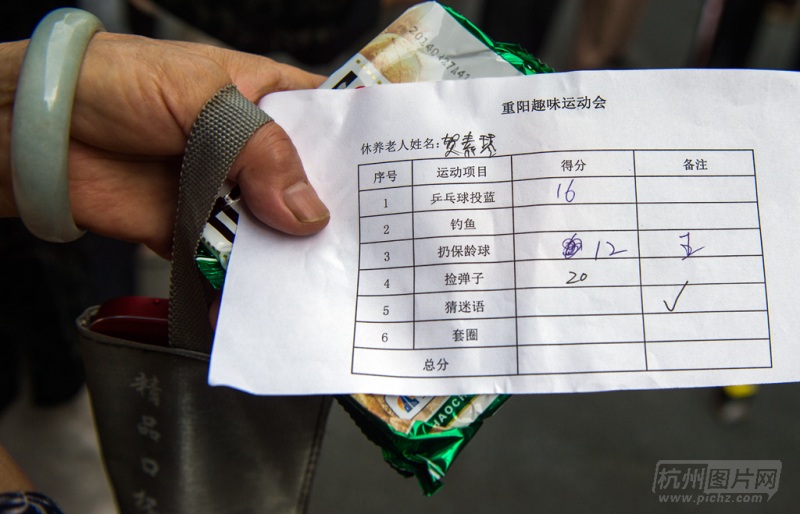 重阳趣味运动会
休养老人姓名：贺素琴
序号 运动项目 得分 备注
1 乒乓球投蓝 16
2 钓鱼
3 扔保龄球 12
4 捡弹子 20
5 猜迷语 ✓
6 套圈
总分
精品口
杭州图片网
www.pichz.com